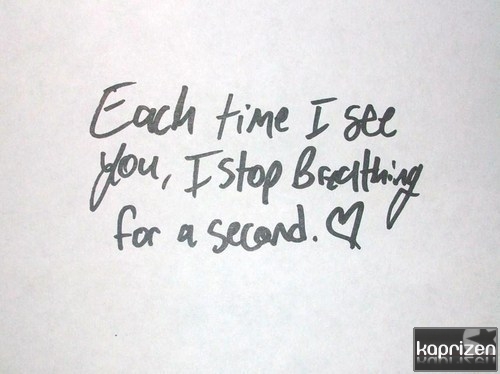 Each time I see
you, I stop Breathing
for a second. ♡
kaprizen